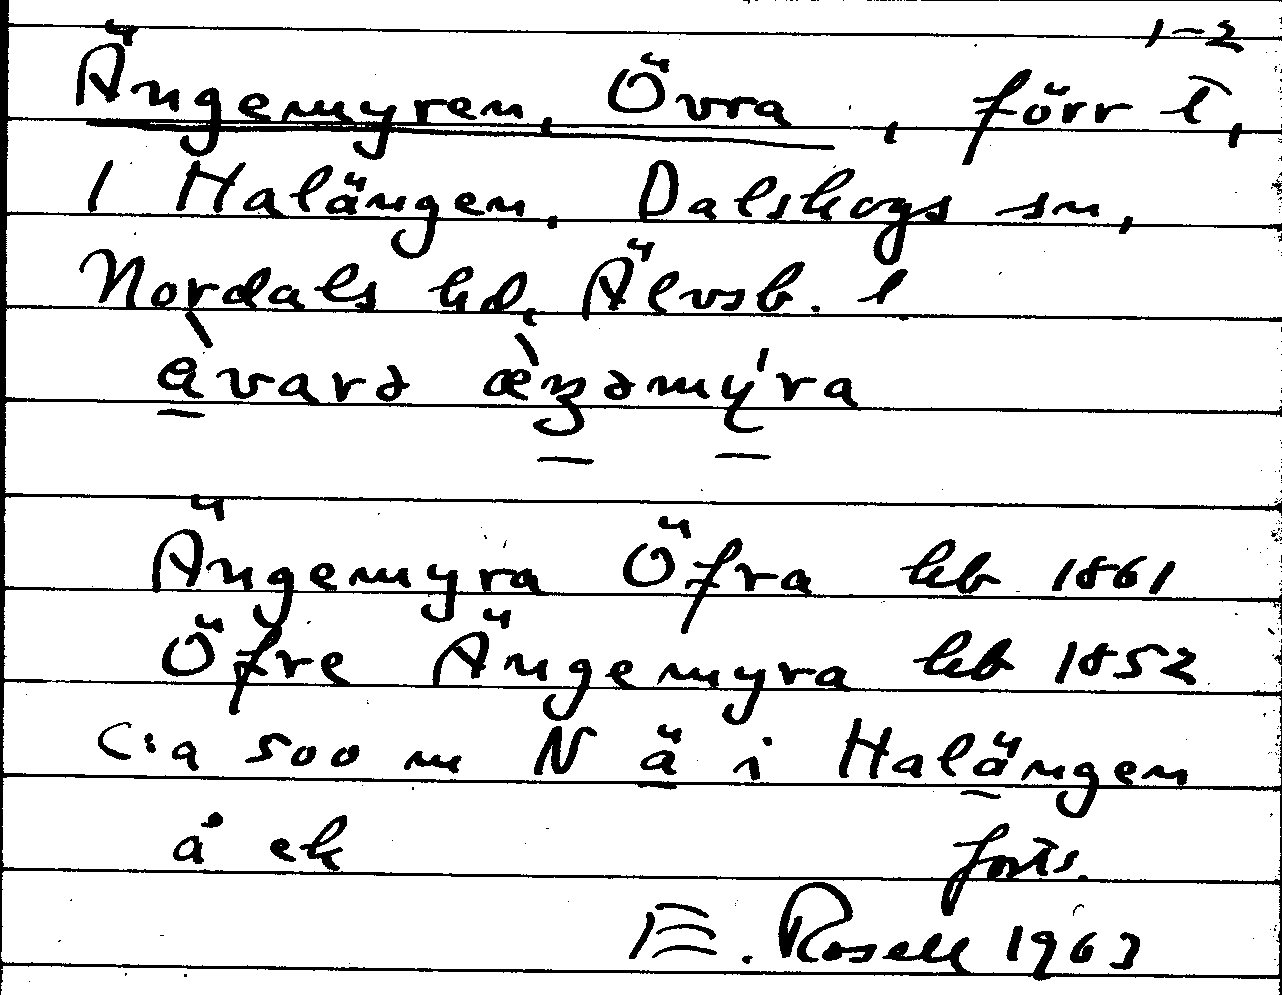 1-2
Ängemyren, Övra, förr t,
1 Halängen, Dalskogs sn,
Nordals hd, Älvsb. l
àvarə æ̀ŋəmy̍ra
Ängemyra Öfra hb 1861
Öfre Ängemyra hb 1852
C:a 500 m N ä i Halängen
å ek forts.
E. Rosell 1963